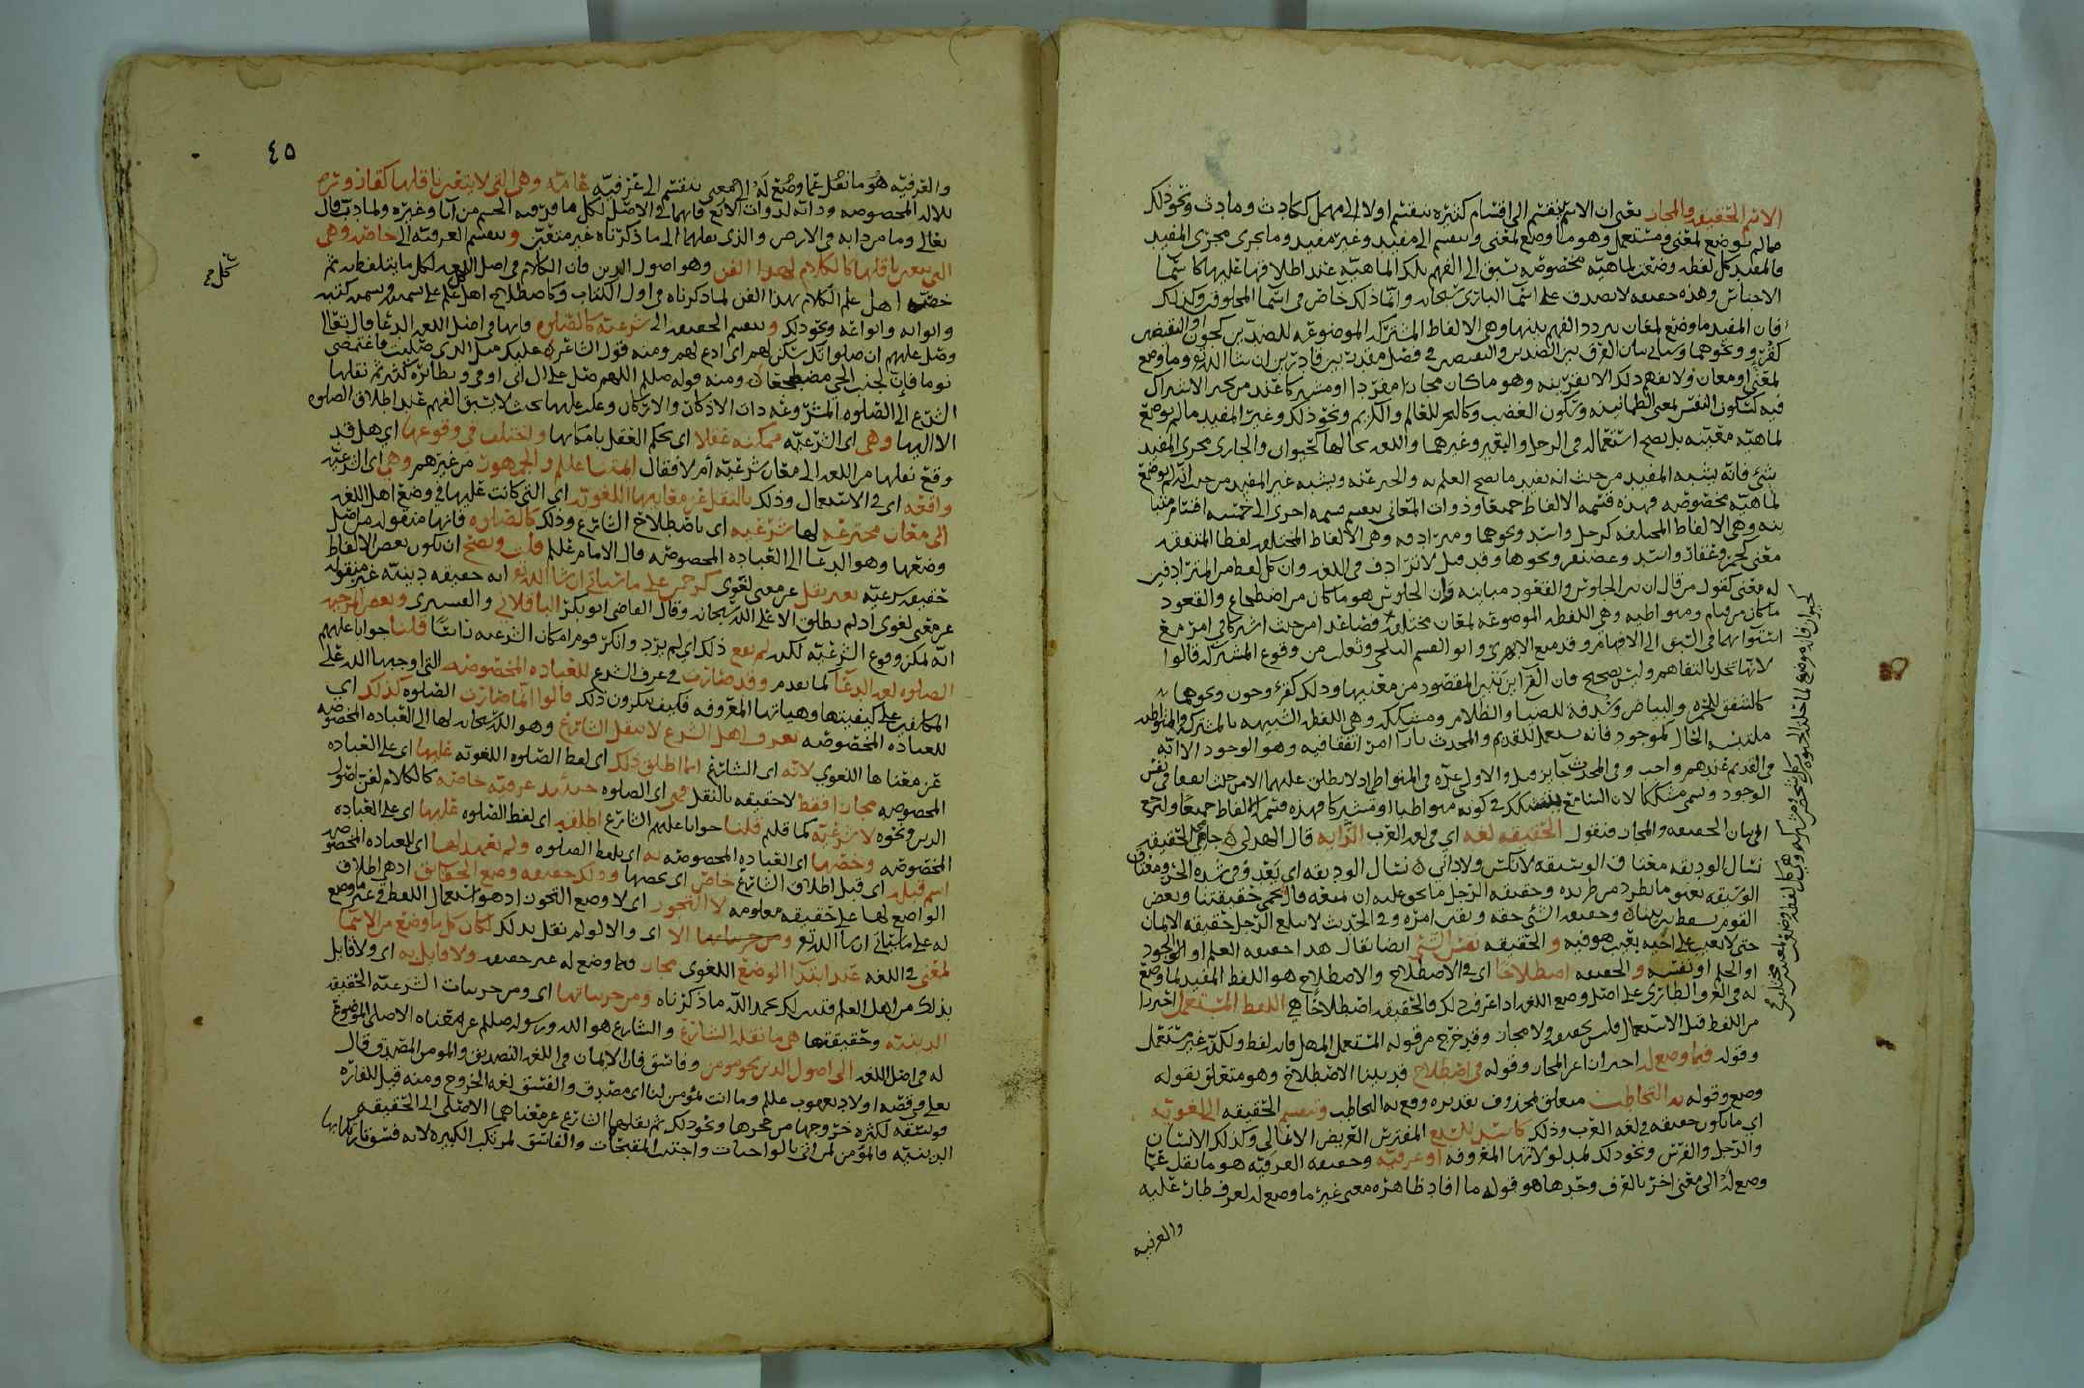 الاسم الحقيقه والمجاز يعني ان الاسم ينقسم الى اقسام كثيره ينقسم اولا الى مهمل ككادث ومادث ونحو ذلك
مالم يوضع لمعنى ومستعمل وهو ما وضع لمعنى وينقسم الى مفيد وغير مفيد وما يجرى مجرى المفيد
فالمفيد كل لفظه وضعت لماهيه مخصوصه تسبق الى الفهم تلك الماهيه عند اطلاقها عليها كاسما
الاجناس وهذه حقيقه لا تصدق على اسما البارى سبحانه وانما ذلك خاص في اسما المخلوقين وكذلك
فان المفيد ما وضع لمعان يتردد الفهم بينها وهي الالفاظ المشتركه الموضوعه للضدين كجون او النقيضين
كقرء ونحوهما وسياتي بيان الفرق بين الضدين والنقيضين في فصل مقدور بين قادرين ان شا الله تع وما وضع
لمعنى او معان ولا يفهم ذلك الا بقرينه وهو ما كان مجازا مفردا او مشتركا عند من يجيز الاشتراك
فيه كسكون النفس لمعنى الطمانينه وسكون الغضب وكالبحر للعالم والكريم ونحو ذلك وغير المفيد مالم يوضع
لماهيه معينه بل يصح استعماله في الرجل والبقير وغيرهما واللغه بحالها كحيوان والجارى مجرى المفيد
شيء فانه يشبه المفيد من حيث انه يفيد ما يصح العلم به والخبر عنه ويشبه غير المفيد من حيث انه لم يوضع
لماهيه مخصوصه فهذه قسمه الالفاظ جميعا وذوات المعاني ينقسم قسمه اخرى الى خمسه اقسام متبا
ينه وهي الالفاظ المختلفه كرجل واسد ونحوهما ومترادفه وهي الالفاظ المختلفه لفظا المتفقه
معنى كخمر وعقار واسد وغضنفر ونحوها وقد قيل لا ترادف في اللغه وان كل لفظ من المترادفين
له معنى كقول من قال ان بين الجلوس والقعود مباينه وان الجلوس هو ما كان من اضطجاع والقعود
ماكان من قيام ومتواطيه وهي اللفظه الموضوعه لمعان مختلفه فصاعدا من حيث اشتركا في امر مع
استوايهما في السبق الى الافهام وقد منع الابهرى وابو القسم البلخي وثعلب من وقوع المشتركه قالوا
لانها تخل بالتفاهم وليس بصحيح فان القراين تبين المقصود من معنييها وذلك كقرء وجون ونحوهما
كالشفق للحمره والبياض وسدفه للضيا والظلام ومشككه وهي اللفظه الشبيهه بالمشتركه والمتواطيه
ملتبسه الحال كموجود فانه يستعمل للقديم والمحدث باراا امر اتفقا فيه وهو الوجود الا انه
في القديم عندهم واجب وفي المحدث جايز
الوجود وسمى مشككا لان السامع يتشكك في كونه متواطيا او مشتركا فهذه قسمه الالفاظ جميعا ولنرجع
الى بيان الحقيقه والمجاز فنقول الحقيقه لغه اي في لغه العرب الرايه قال الهذلي حامي الحقيقه
نسال الوديقه معتاق الوسيقه لا نكس ولا واني
القوم
حتى لا يعيب على اخيه بعيب هو فيه والحقيقه نفس الشي ايضا يقال هذا حقيقه العلم او الوجود
او الحلم او نفسه والحقيقه اصطلاحا اى في الاصطلاح والاصطلاح هو اللفظ المفيد لما وضع
له في العرف الطارى على اصل وضع اللغه اذا عرفت ذلك فالحقيقه اصطلاحا هي اللفظ المستعمل احترازا
من اللفظ قبل الاستعمال فليس بحقيقه ولا مجاز وقد خرج من قوله المستعمل المهمل فانه لفظ ولكنه غير مستعمل
وقوله فيما وضع له احترازا عن المجاز وقوله في اصطلاح قد بينا الاصطلاح وهو متعلق بقوله
وضع وقوله به التخاطب متعلق بمحذوف تقديره وقع به التخاطب وتنقسم الحقيقه الى لغويه
اي ما تكون حقيقه في لغه العرب وذلك كاسد للسبع المفترس العريض الاعالي وكذلك الانسان
والرجل والفرس ونحو ذلك لمدلولاتها المعروفه او عرفيه وحقيقه العرفيه هو ما نقل عما
وضع له الى معنى اخر بالعرف وحدها هو قوله ما افاد ظاهره معنى غير ما وضع له لعرف طار عليه
والعرفيه
٤٥
والعرفيه هو ما نقل عما وضع له الى معنى ينقسم الى عرفيه عامه وهي التي لا يتعين ناقلها كقارورة
للاله المخصوصه ودابه لذوات الاربع فانهما في الاصل لكل ما قر فيه الجسم من انا وغيره ولما دب قال
تعالى وما من دابه في الارض والذى نقلهما الى ما ذكرناه غير متعين وتنقسم العرفيه الى خاصه وهي
التي يتعين ناقلها كالكلام لهذا الفن وهو اصول الدين فان الكلام في اصل اللغه لكل ما يتلفظ به ثم
خصه اهل علم الكلام بهذا الفن لما ذكرناه في اول الكتاب وكاصطلاح اهل كل علم على تسميه وتسميه كتبه
وابوابه وانواعه ونحو ذلك وتنقسم الحقيقه الى شرعيه كالصلوه فانها في اصل اللغه الدعا قال تعالى
وصل عليهم ان صلواتك سكن لهم اى ادع لهم ومنه قول الشاعر عليك مثل الذى صليت فاغتمضي
نوما فان لجنب الحي مضطجعا ومنه قوله صلعم اللهم صل على ال ابي اوفى ونظائره كثير ثم نقلها
الشرع الى الصلوه المشروعه ذات الاذكار والاركان وغلب عليها بحيث لا يسبق الفهم عند اطلاق الصلوه
الا اليها وهي اى الشرعيه ممكنه عقلا اى يحكم العقل بامكانها واختلف في وقوعها اي هل قد
وقع نقلها من اللغه الى معان شرعيه ام لا فقال ايمتنا علم والجمهور من غيرهم وهي اى الشرعيه
واقعه اى في الاستعمال وذلك بالنقل عن معانيها اللغويه اي التي كانت عليها في وضع اهل اللغه
الى معان مخترعه لها شرعيه اى باصطلاح الشارع وذلك كالصلوه فانها منقوله من اصل
وضعها وهو الدعا الى العباده المخصوصه قال الامام علم قلت ويصح ان تكون بعض الالفاظ
حقيقه شرعيه بغير نقل عن معنى لغوى كرحمن على ما سياتي ان شا الله تع انه حقيقه دينيه غير منقوله
عن معنى لغوى اذ لم يطلق الا على الله سبحانه وقال القاضي ابو بكر الباقلاني والقشيرى وبعض المرجيه
انه لم يكن وقوع الشرعيه لكنه لم يقع ذلك اي لم يرد وانكر قوم امكان الشرعيه راسا قلنا جوابا عليهم
الصلوه لغه الدعا كما تقدم وقد صارت في عرف الشرع للعباده المخصوصه التي اوجبها الله على
المكلفين على كيفيتها وهياتها المعروفه فكيف ينكرون ذلك قالوا انما صارت الصلوه كذلك اي
للعباده المخصوصه بعرف اهل الشرع لا بنقل الشارع وهو الله سبحانه لها الى العباده المخصوصه
عن معناها اللغوي لانه اى الشارع انما اطلق ذلك اى لفظ الصلوه اللغويه عليها اى على العباده
المخصوصه مجازا فقط لا حقيقه بالنقل فهي اى الصلوه حينئذ عرفيه خاصه كالكلام لفن اصول
الدين ونحوه لا شرعيه كما قلتم قلنا جوابا عليهم الشارع اطلقه اى لفظ الصلوه عليها اى على العباده
المخصوصه وخصها اى العباده المخصوصه به اى بلفظ الصلوه ولم يعهد لها اى للعباده المخصوصه
اسم قبله اى قبل اطلاق الشارع خاص اى يخصها وذلك حقيقه وضع الحقايق اذ هو اطلاق
الواضع لها على حقيقه معلومه لا التجوز اي لا وضع التجوز اذ هو استعمال اللفظ في غير ما وضع
له على ما سياتي ان شا الله تع والا اى والا لو لم نقل بذلك لكان كل ما وضع من الاسما
لمعنى في اللغه عند ابتدا الوضع اللغوى مجازا فيما وضع له غير حقيقه ولا قايل به اى ولا قايل
بذلك من اهل العلم فثبت لك بحمد الله ما ذكرناه ومن جزيياتها اى ومن جزييات الشرعيه الحقيقه
الدينيه وحقيقتها هي ما نقله الشارع والشارع هو الله ورسوله صلعم عن معناه الاصلي الموضوع
له في اصل اللغه الى اصول الدين نحو مومن وفاسق فان الايمان في اللغه التصديق والمومن المصدق قال
تعالى في قصه اولاد يعقوب علم وما انت بمؤمن لنا اى مصدق والفسق لغه الخروج ومنه قيل للفاره
فويسقه لكثره خروجها من جحرها ونحو ذلك ثم نقلهما الشارع عن معناهما الاصلي الى الحقيقه
الدينيه فالمؤمن لمن اتى بالواجبات واجتنب المقبحات والفاسق لمرتكب الكبيره لانه فسوق